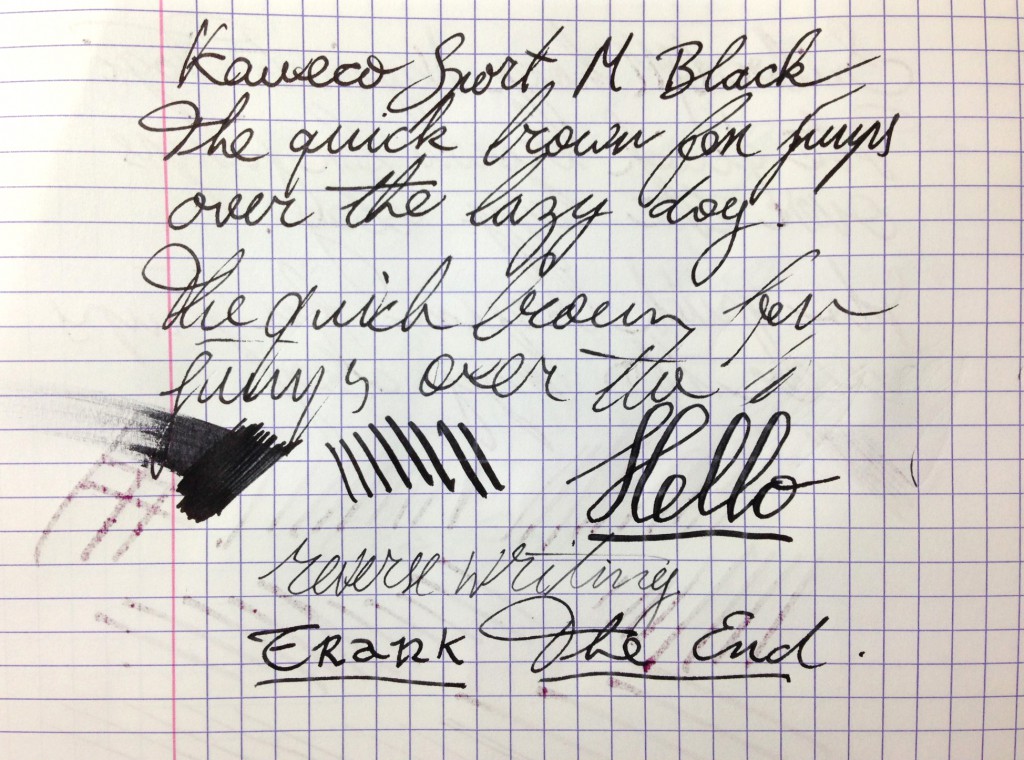 Kaweco Sport M Black
The quick brown fox jumps
over the lazy dog.
The quick brown fox
jumps over the
Hello
reverse writing
Frank The End.